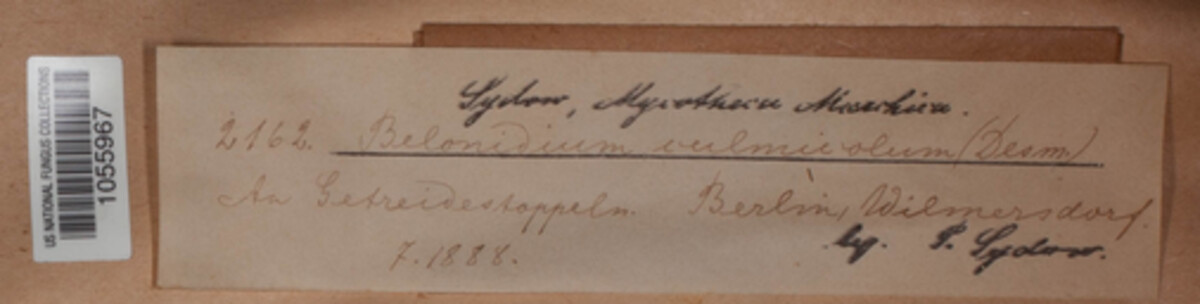 US NATIONAL FUNGUS COLLECTIONS
1055967
Sydow, Mycotheca Marchica.
2162. Belonidium culmicolum (Desm)
An Getreidestoppeln. Berlin, Wilmersdorf.
7.1888. leg. P. Sydow.